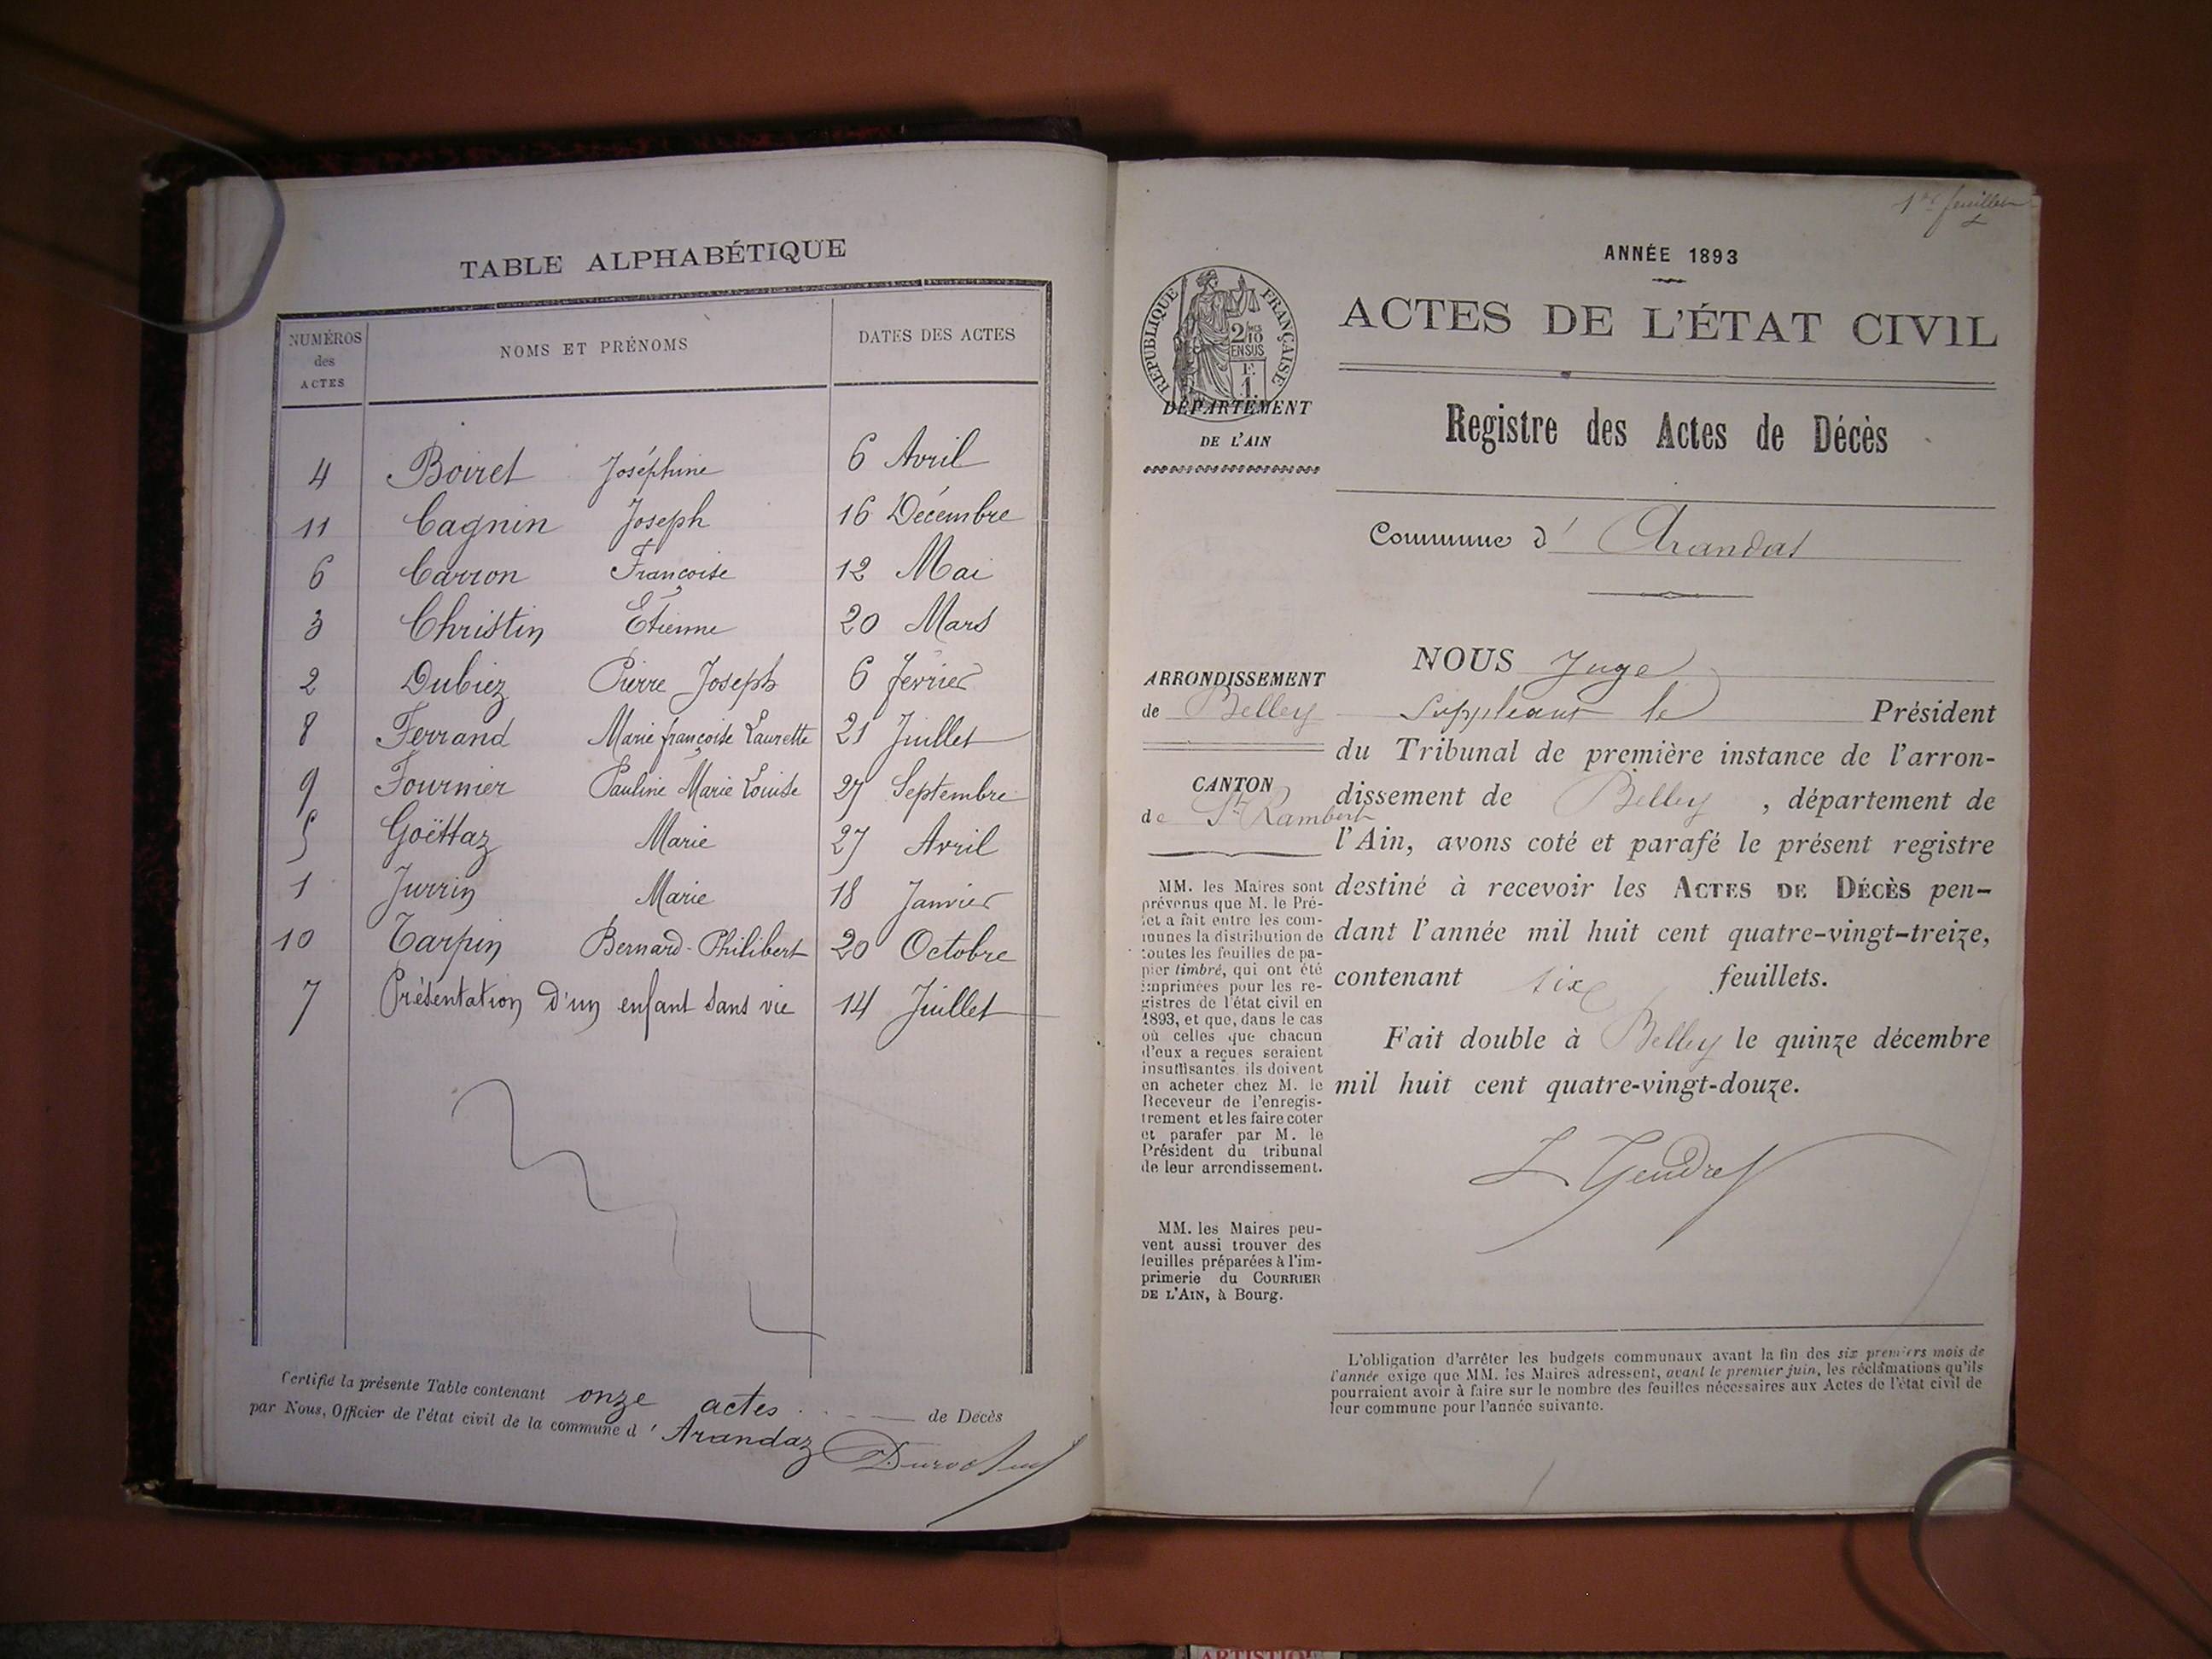 TABLE ALPHABÉTIQUE
NUMÉROS des ACTES
NOMS ET PRÉNOMS
DATES DES ACTES
4 Boiret Joséphine 6 Avril
11 Cagnin Joseph 16 Décembre
6 Carron Françoise 12 Mai
3 Christin Étienne 20 Mars
2 Dubiez Pierre Joseph 6 février
8 Ferrand Marie françoise Laurette 21 Juillet
9 Fournier Pauline Marie Louise 27 Septembre
5 Goëttaz Marie 27 Avril
1 Jurrin Marie 18 Janvier
10 Tarpin Bernard-Philibert 20 Octobre
7 Présentation d'un enfant sans vie 14 Juillet
Certifié la présente Table contenant onze actes de Décès
par Nous, Officier de l'état civil de la commune d'Arandaz
1er feuillet
ANNÉE 1893
RÉPUBLIQUE FRANÇAISE
2/10
EN SUS
F.
1.
ACTES DE L'ÉTAT CIVIL
DÉPARTEMENT
DE L'AIN
Registre des Actes de Décès
Commune d' Arandas
ARRONDISSEMENT
de Belley
CANTON
de St Rambert
MM. les Maires sont
prévenus que M. le Pré-
fet a fait entre les com-
munes la distribution de
toutes les feuilles de pa-
pier timbré, qui ont été
imprimées pour les re-
gistres de l'état civil en
1893, et que, dans le cas
où celles que chacun
d'eux a reçues seraient
insuffisantes, ils doivent
en acheter chez M. le
Receveur de l'enregis-
trement et les faire coter
et parafer par M. le
Président du tribunal
de leur arrondissement.
MM. les Maires peu-
vent aussi trouver des
feuilles préparées à l'im-
primerie du COURRIER
DE L'AIN, à Bourg.
NOUS Juge
Suppléant le Président
du Tribunal de première instance de l'arron-
dissement de Belley, département de
l'Ain, avons coté et parafé le présent registre
destiné à recevoir les ACTES DE DÉCÈS pen-
dant l'année mil huit cent quatre-vingt-treize,
contenant six feuillets.
Fait double à Belley le quinze décembre
mil huit cent quatre-vingt-douze.
L'obligation d'arrêter les budgets communaux avant la fin des six premiers mois de
l'année exige que MM. les Maires adressent, avant le premier juin, les réclamations qu'ils
pourraient avoir à faire sur le nombre des feuilles nécessaires aux Actes de l'état civil de
leur commune pour l'année suivante.